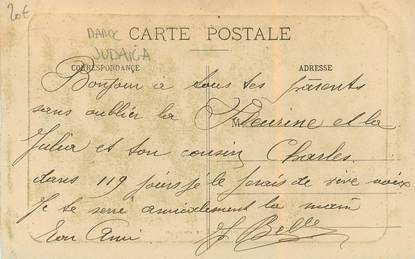 20€
MAROC
JUDAICA
CARTE POSTALE
CORRESPONDANCE
ADRESSE
Bonjour à tous tes parents
sans oublier la et la
M
Julia et ton cousin Charles
dans 119 jours je le ferais de vive voix
Je te serre amicalement la main
Ton Ami. Belle